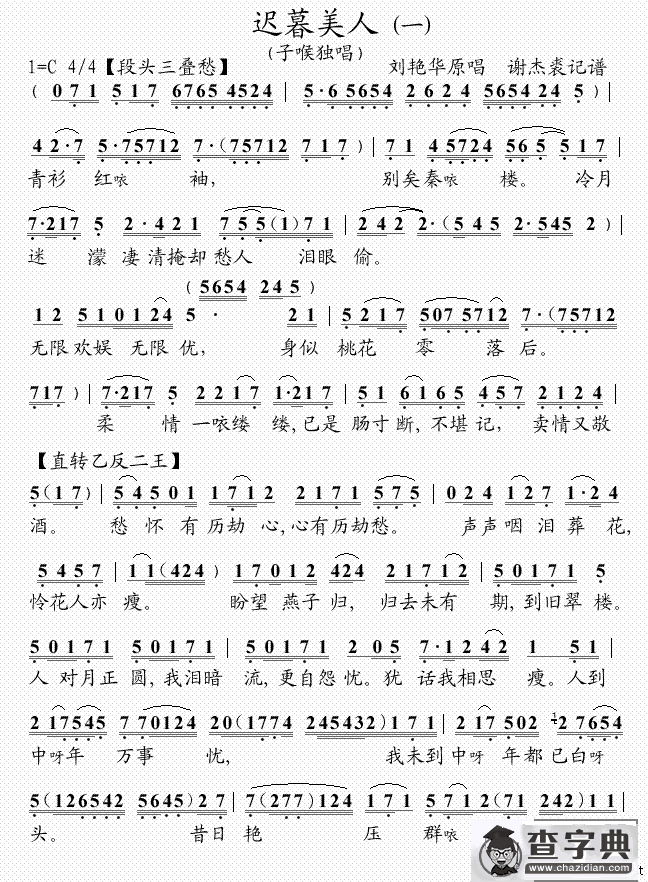 迟暮美人 (一)
(子喉独唱)
1=C 4/4【段头三叠愁】 刘艳华原唱 谢杰裘记谱
( 0 7 1 5 1 7 6765 4524 | 5·6 5654 2 6 2 4 565424 5 ) |
4 2·7 5·75712 7·(75712 7 1 7 ) | 7 1 4 5724 565 5 5 1 7 |
青衫 红哝 袖, 别矣秦哝 楼。 冷月
7·217 5 2·421 7 5 5(1)7 1 | 2 4 2 2·(5 4 5 2·545 2 ) |
迷 濛 凄 清掩却愁人 泪眼 偷。
( 5654 245 )
1 2 5 1 0 1 2 4 5 · 2 1 | 5 2 1 7 507 5712 7·(75712
无限欢娱 无限 优, 身似 桃花 零 落 后。
717 ) | 7·217 5 2 2 1 7 1·217 | 5 1 6 1 6 5 4 5 7 2 1 2 4 |
柔 情 一哝缕 缕,已是 肠寸断,不堪记, 卖情又敬
【直转乙反二王】
5(1 7) | 5 4 5 0 1 1 7 1 2 2 1 7 1 5 7 5 | 0 2 4 1 2 7 1·2 4
酒。 愁 怀 有 历劫 心,心有历劫愁。 声声 咽 泪 葬 花,
5 4 5 7 | 1 1 (424) 1 7 0 1 2 4 2 4 2 1 7 1 2 | 5 0 1 7 1 5
怜花人亦 瘦。 盼望 燕子 归, 归去未有 期,到旧翠 楼。
5 0 1 7 1 5 0 1 7 1 | 5 0 1 7 1 2 0 5 7·1 2 4 2 1 5 1 |
人 对月正 圆,我泪暗 流,更自怨 忧。犹 话我相思 瘦。人到
2 17545 7 70124 20(1774 245432)1 7 1 | 2 1 7 502 2 7654
中呀年 万事 忧, 我未到 中呀 年都 已白呀
5(126542 5645)2 7 | 7(277)124 1 7 1 5 7 1 2(7 1 242)1 1 |
头。 昔日 艳 压 群哝
查字典
www.chazidian.com
t